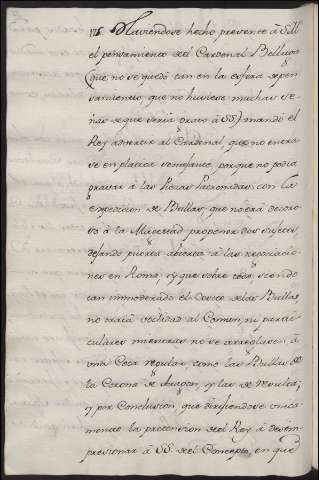 178 Haviendose hecho presente à S.M.
el pensamiento del Cardenal Belluga
(que no se quedò tan en la esfera de pen-
samiento, que no huviese muchas se-
ñas de que venia de SS) mandò el
Rey advertir al Cardenal, que no entra-
se en platica semejante, porque no podia
gravar à las Piezas Patronadas con la
expedicion de Bullas, que no era decoro-
so à la Magestad proponer dos sujetos,
dejando puerta abierta à las negociacio-
nes en Roma; y que sobre todo, siendo
tan inmoderado el coste de las Bullas,
no traia utilidad al Comun, ni parti-
culares mientras no se arreglasen à
una Cota regular, como las Bullas de
la Corona de Aragon, y las de Sevilla;
y por Conclusion, que dirijiendose unica
mente la pretension del Rey à desim-
presionar à SS. del Concepto, en que